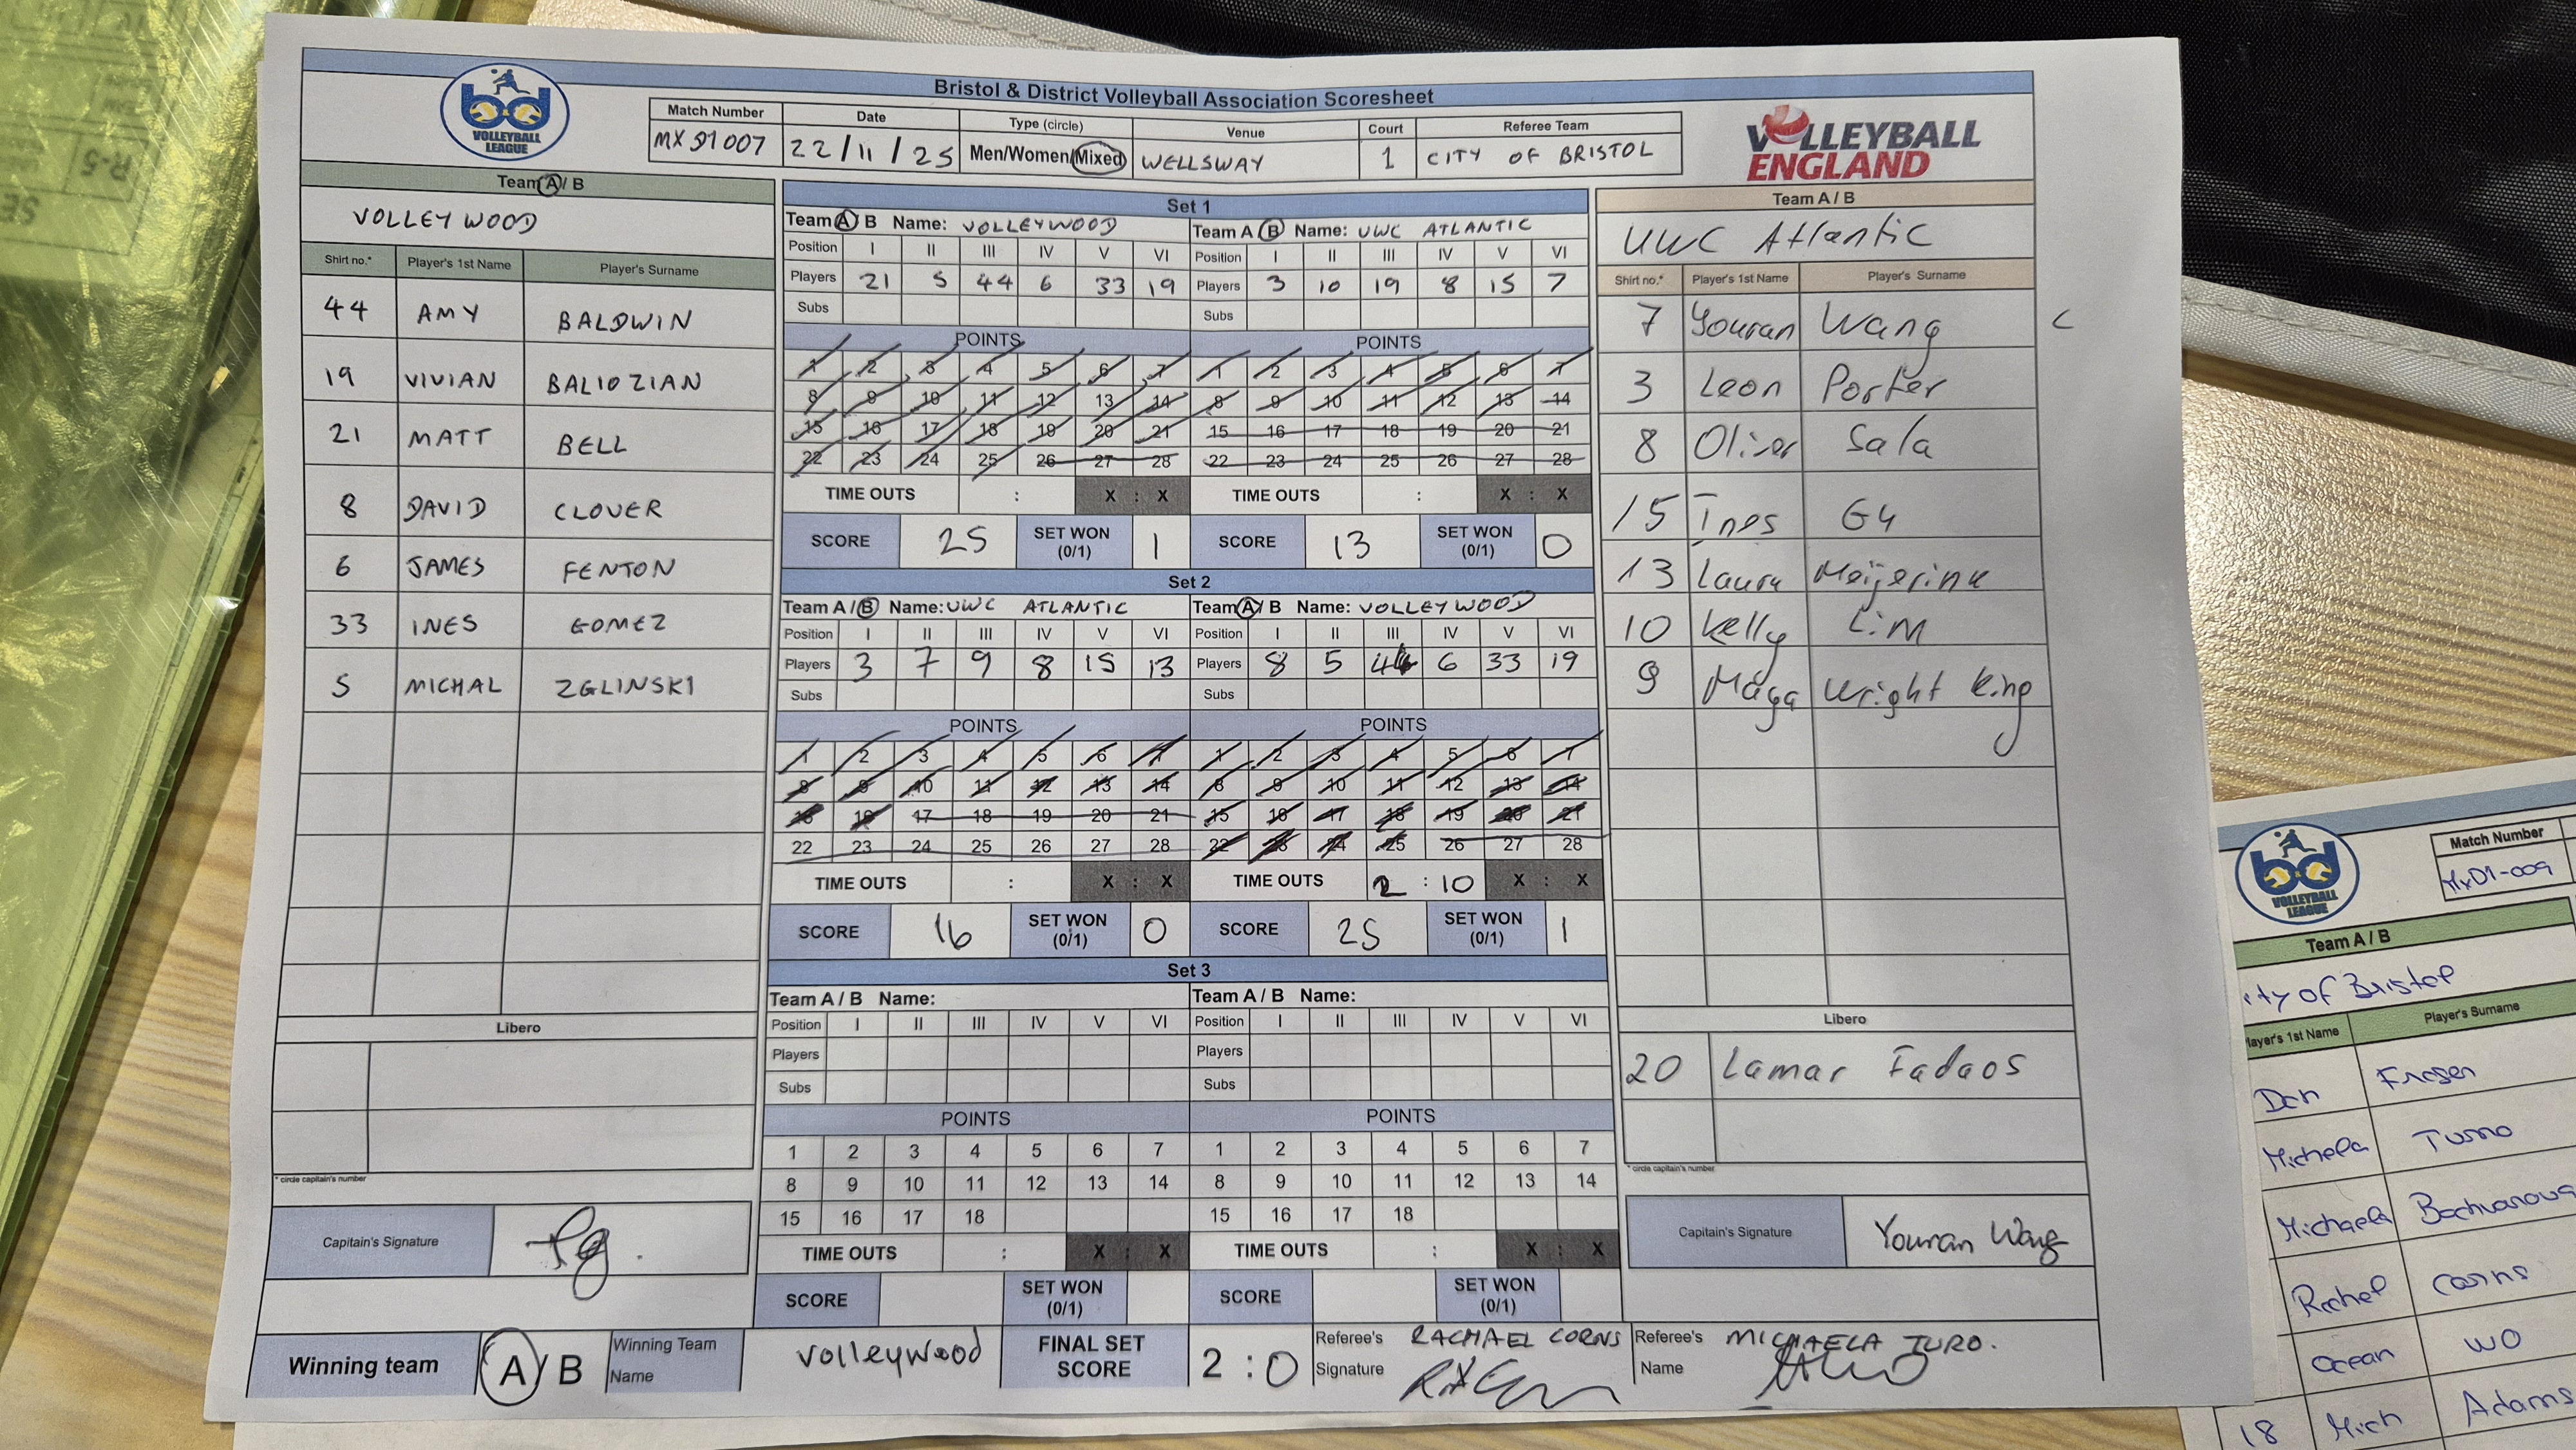 Bristol & District Volleyball Association Scoresheet
bd VOLLEYBALL LEAGUE
Match Number Date Type (circle) Venue Court Referee Team
MXD1007 22/11/25 Men/Women/Mixed WELLSWAY 1 CITY OF BRISTOL
VOLLEYBALL ENGLAND
Team A / B
VOLLEYWOOD
Shirt no.* Player's 1st Name Player's Surname
44 AMY BALDWIN
19 VIVIAN BALIOZIAN
21 MATT BELL
8 DAVID CLOVER
6 JAMES FENTON
33 INES GOMEZ
5 MICHAL ZGLINSKI
Libero
* circle capitain's number
Capitain's Signature
Set 1
Team A / B Name: VOLLEYWOOD
Position I II III IV V VI
Players 21 5 44 6 33 19
Subs
POINTS
1 2 3 4 5 6 7
8 9 10 11 12 13 14
15 16 17 18 19 20 21
22 23 24 25 26 27 28
TIME OUTS : X : X
SCORE 25 SET WON (0/1) 1
Team A / B Name: UWC ATLANTIC
Position I II III IV V VI
Players 3 10 19 8 15 7
Subs
POINTS
1 2 3 4 5 6 7
8 9 10 11 12 13 14
15 16 17 18 19 20 21
22 23 24 25 26 27 28
TIME OUTS : X : X
SCORE 13 SET WON (0/1) 0
Set 2
Team A / B Name: UWC ATLANTIC
Position I II III IV V VI
Players 3 7 9 8 15 13
Subs
POINTS
1 2 3 4 5 6 7
8 9 10 11 12 13 14
15 16 17 18 19 20 21
22 23 24 25 26 27 28
TIME OUTS : X : X
SCORE 16 SET WON (0/1) 0
Team A / B Name: VOLLEYWOOD
Position I II III IV V VI
Players 8 5 44 6 33 19
Subs
POINTS
1 2 3 4 5 6 7
8 9 10 11 12 13 14
15 16 17 18 19 20 21
22 23 24 25 26 27 28
TIME OUTS 2 : 10 X : X
SCORE 25 SET WON (0/1) 1
Set 3
Team A / B Name:
Position I II III IV V VI
Players
Subs
POINTS
1 2 3 4 5 6 7
8 9 10 11 12 13 14
15 16 17 18
TIME OUTS : X : X
SCORE SET WON (0/1)
Team A / B Name:
Position I II III IV V VI
Players
Subs
POINTS
1 2 3 4 5 6 7
8 9 10 11 12 13 14
15 16 17 18
TIME OUTS : X : X
SCORE SET WON (0/1)
Team A / B
UWC Atlantic
Shirt no.* Player's 1st Name Player's Surname
7 Youran Wang C
3 Leon Porter
8 Oliver Sala
15 Ines Gy
13 Laura Meijerink
10 Kelly Lim
9 Maya Wright King
Libero
20 Lamar Fadaos
* circle capitain's number
Capitain's Signature Youran Wang
Winning team A/B Winning Team Name volleywood FINAL SET SCORE 2 : 0 Referee's Signature RACHAEL CORNS Referee's Name MICHAELA TURO.
bd VOLLEYBALL LEAGUE
Match Number
MxD1-009
Team A / B
ity of Bristol
layer's 1st Name Player's Surname
Dan Fraser
Michela Turno
Michaela
Rachel Corns
Ocean WO
18 Mich Adams
R-5